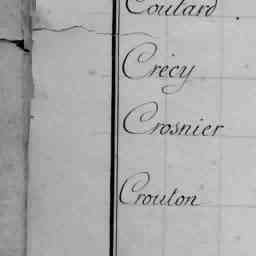 Coulard
Crécy
Crosnier
Crouton